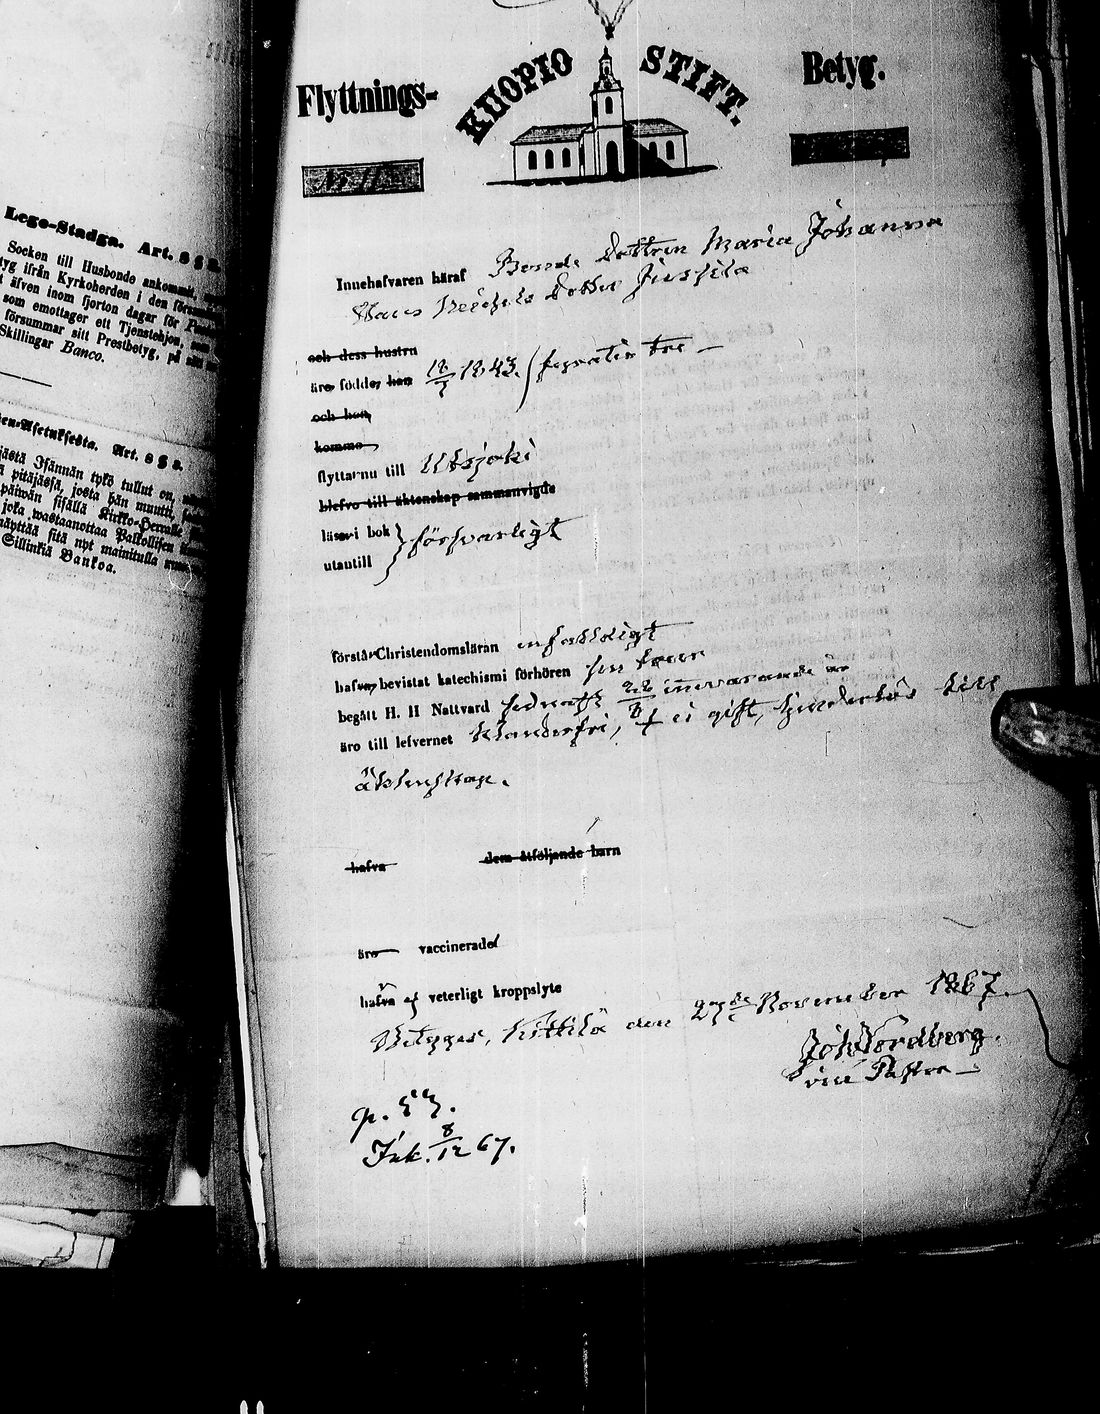 Lego-Stadga. Art. 8 § 2.
Socken till Husbonde ankommit,
ifrån Kyrkoherden i den
äfven inom fjorton dagar för
som emottager ett Tjenstehjon,
försummar sitt Prestbetyg, på
Skillingar Banco.
Asetuksesta. Art. 8 § 2.
Isännän tykö tullut on,
pitäjässä, josta hän muutti,
päiwän sisällä Kirkko-Herralle
joka wastaanottaa Palkollisen
näyttää sitä nyt mainitulla
Sillinkiä Bankoa.
Flyttnings- KUOPIO STIFT. Betyg.
Innehafvaren häraf Bonde Dottren Maria Johanna
Hans Dotter
och dess hustru
äro födde, han 18/7 1843. / fyratio tre —
och hon,
komma
flyttar nu till Utsjoki
blefvo till äktenskap sammanvigde
läsa i bok } försvarligt
utantill
förstå Christendomsläran enfaldigt
hafva bevistat katechismi förhören
begått H. H Nattvard sednast innevarande år
äro till lefvernet klanderfri, ej gift, hinderlös till
äktenskap.
hafva dem åtföljande barn
äro vaccinerade
hafva ej veterligt kroppslyte
Betygar, Kittilä den 27de November 1867.
Joh Nordberg.
vice Pastor —
p. 53.
Ink. 8/12 67.